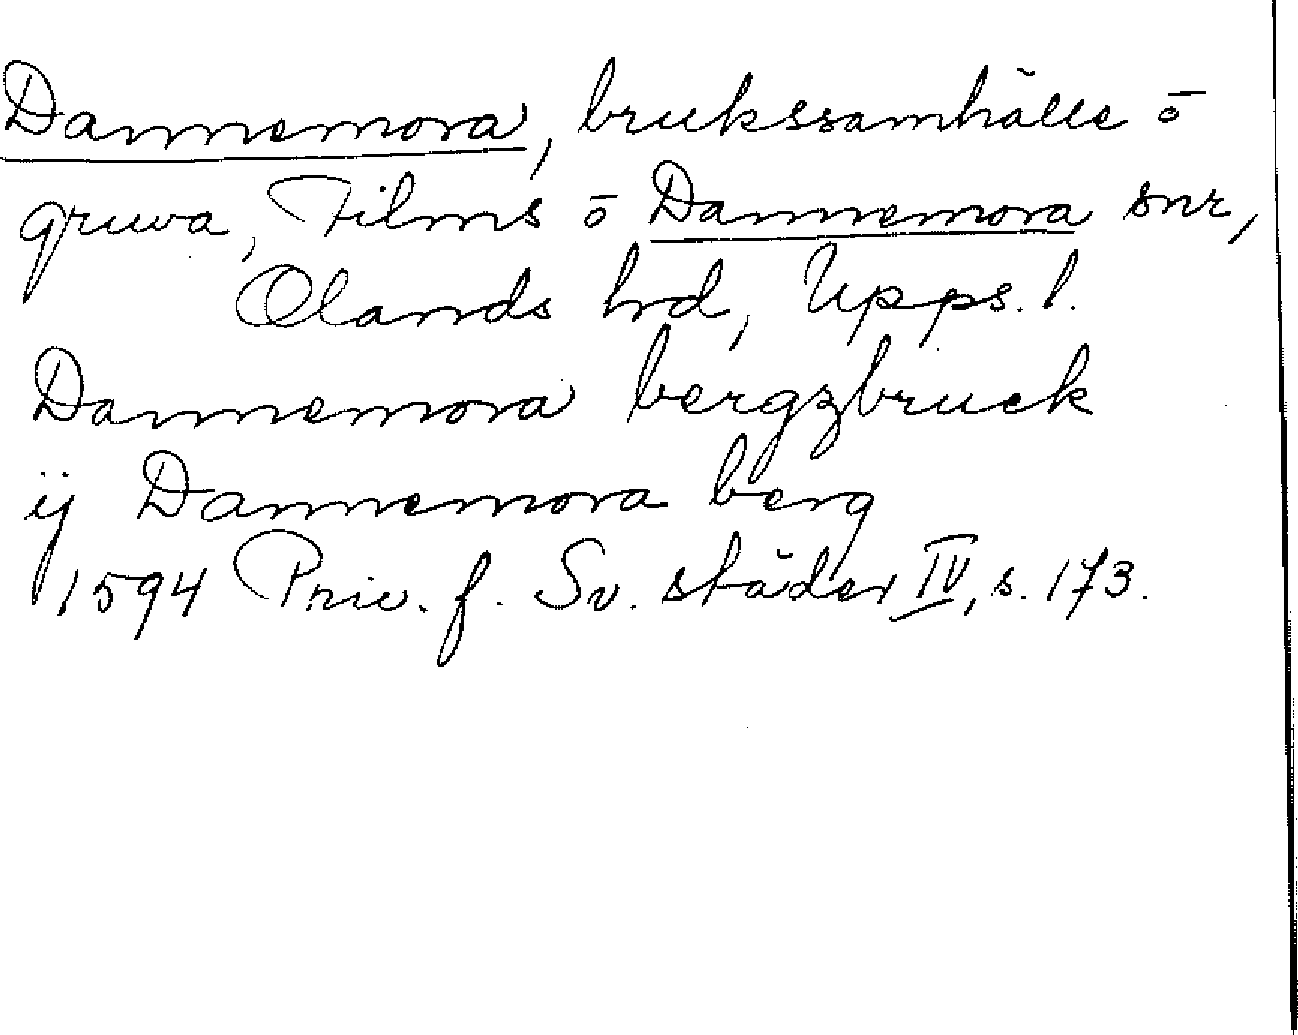 Dannemora, brukssamhälle o
gruva, Films o Dannemora snr,
Olands hd, Upps. l.
Dannemora bergzbruck
ij Dannemora berg
1594 Priv. f. Sv. städer IV, s. 173.